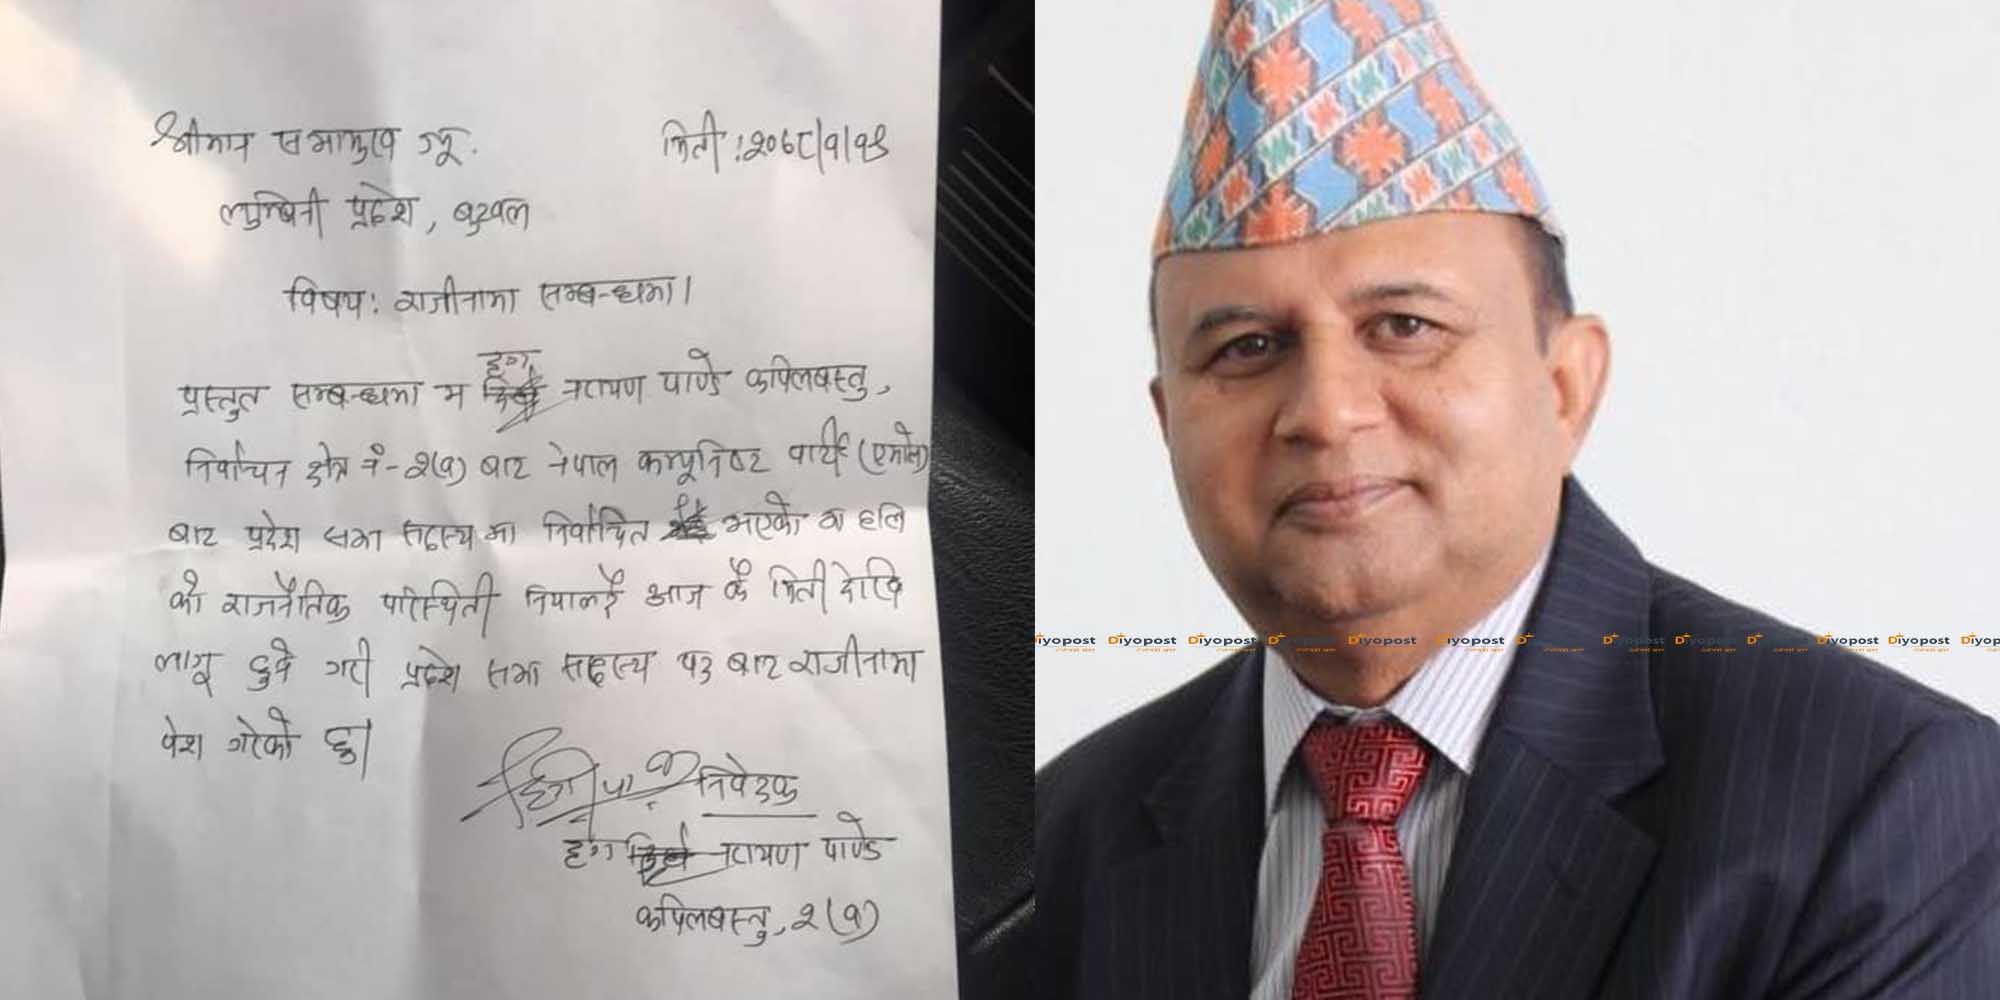 श्रीमान सभामुख ज्यू.
मिती : २०७८/१/१९
लुम्बिनी प्रदेश, बुटवल
विषय: राजीनामा सम्बन्धमा।
प्रस्तुत सम्बन्धमा म दृग नारायण पाण्डे कपिलबस्तु,
निर्वाचन क्षेत्र नं-२(१) बाट नेपाल कम्युनिष्ट पार्टी (एमाले)
बाट प्रदेश सभा सदस्य मा निर्वाचित भएको म हाल
को राजनैतिक परिस्थिती नियालदै आज कै मिती देखि
लागू हुने गरी प्रदेश सभा सदस्य पद बाट राजीनामा
पेश गरेको छु।
निवेदक
दृग नारायण पाण्डे
कपिलबस्तु, २(१)
Diyopost Diyopost Diyopost Diyopost Diyopost